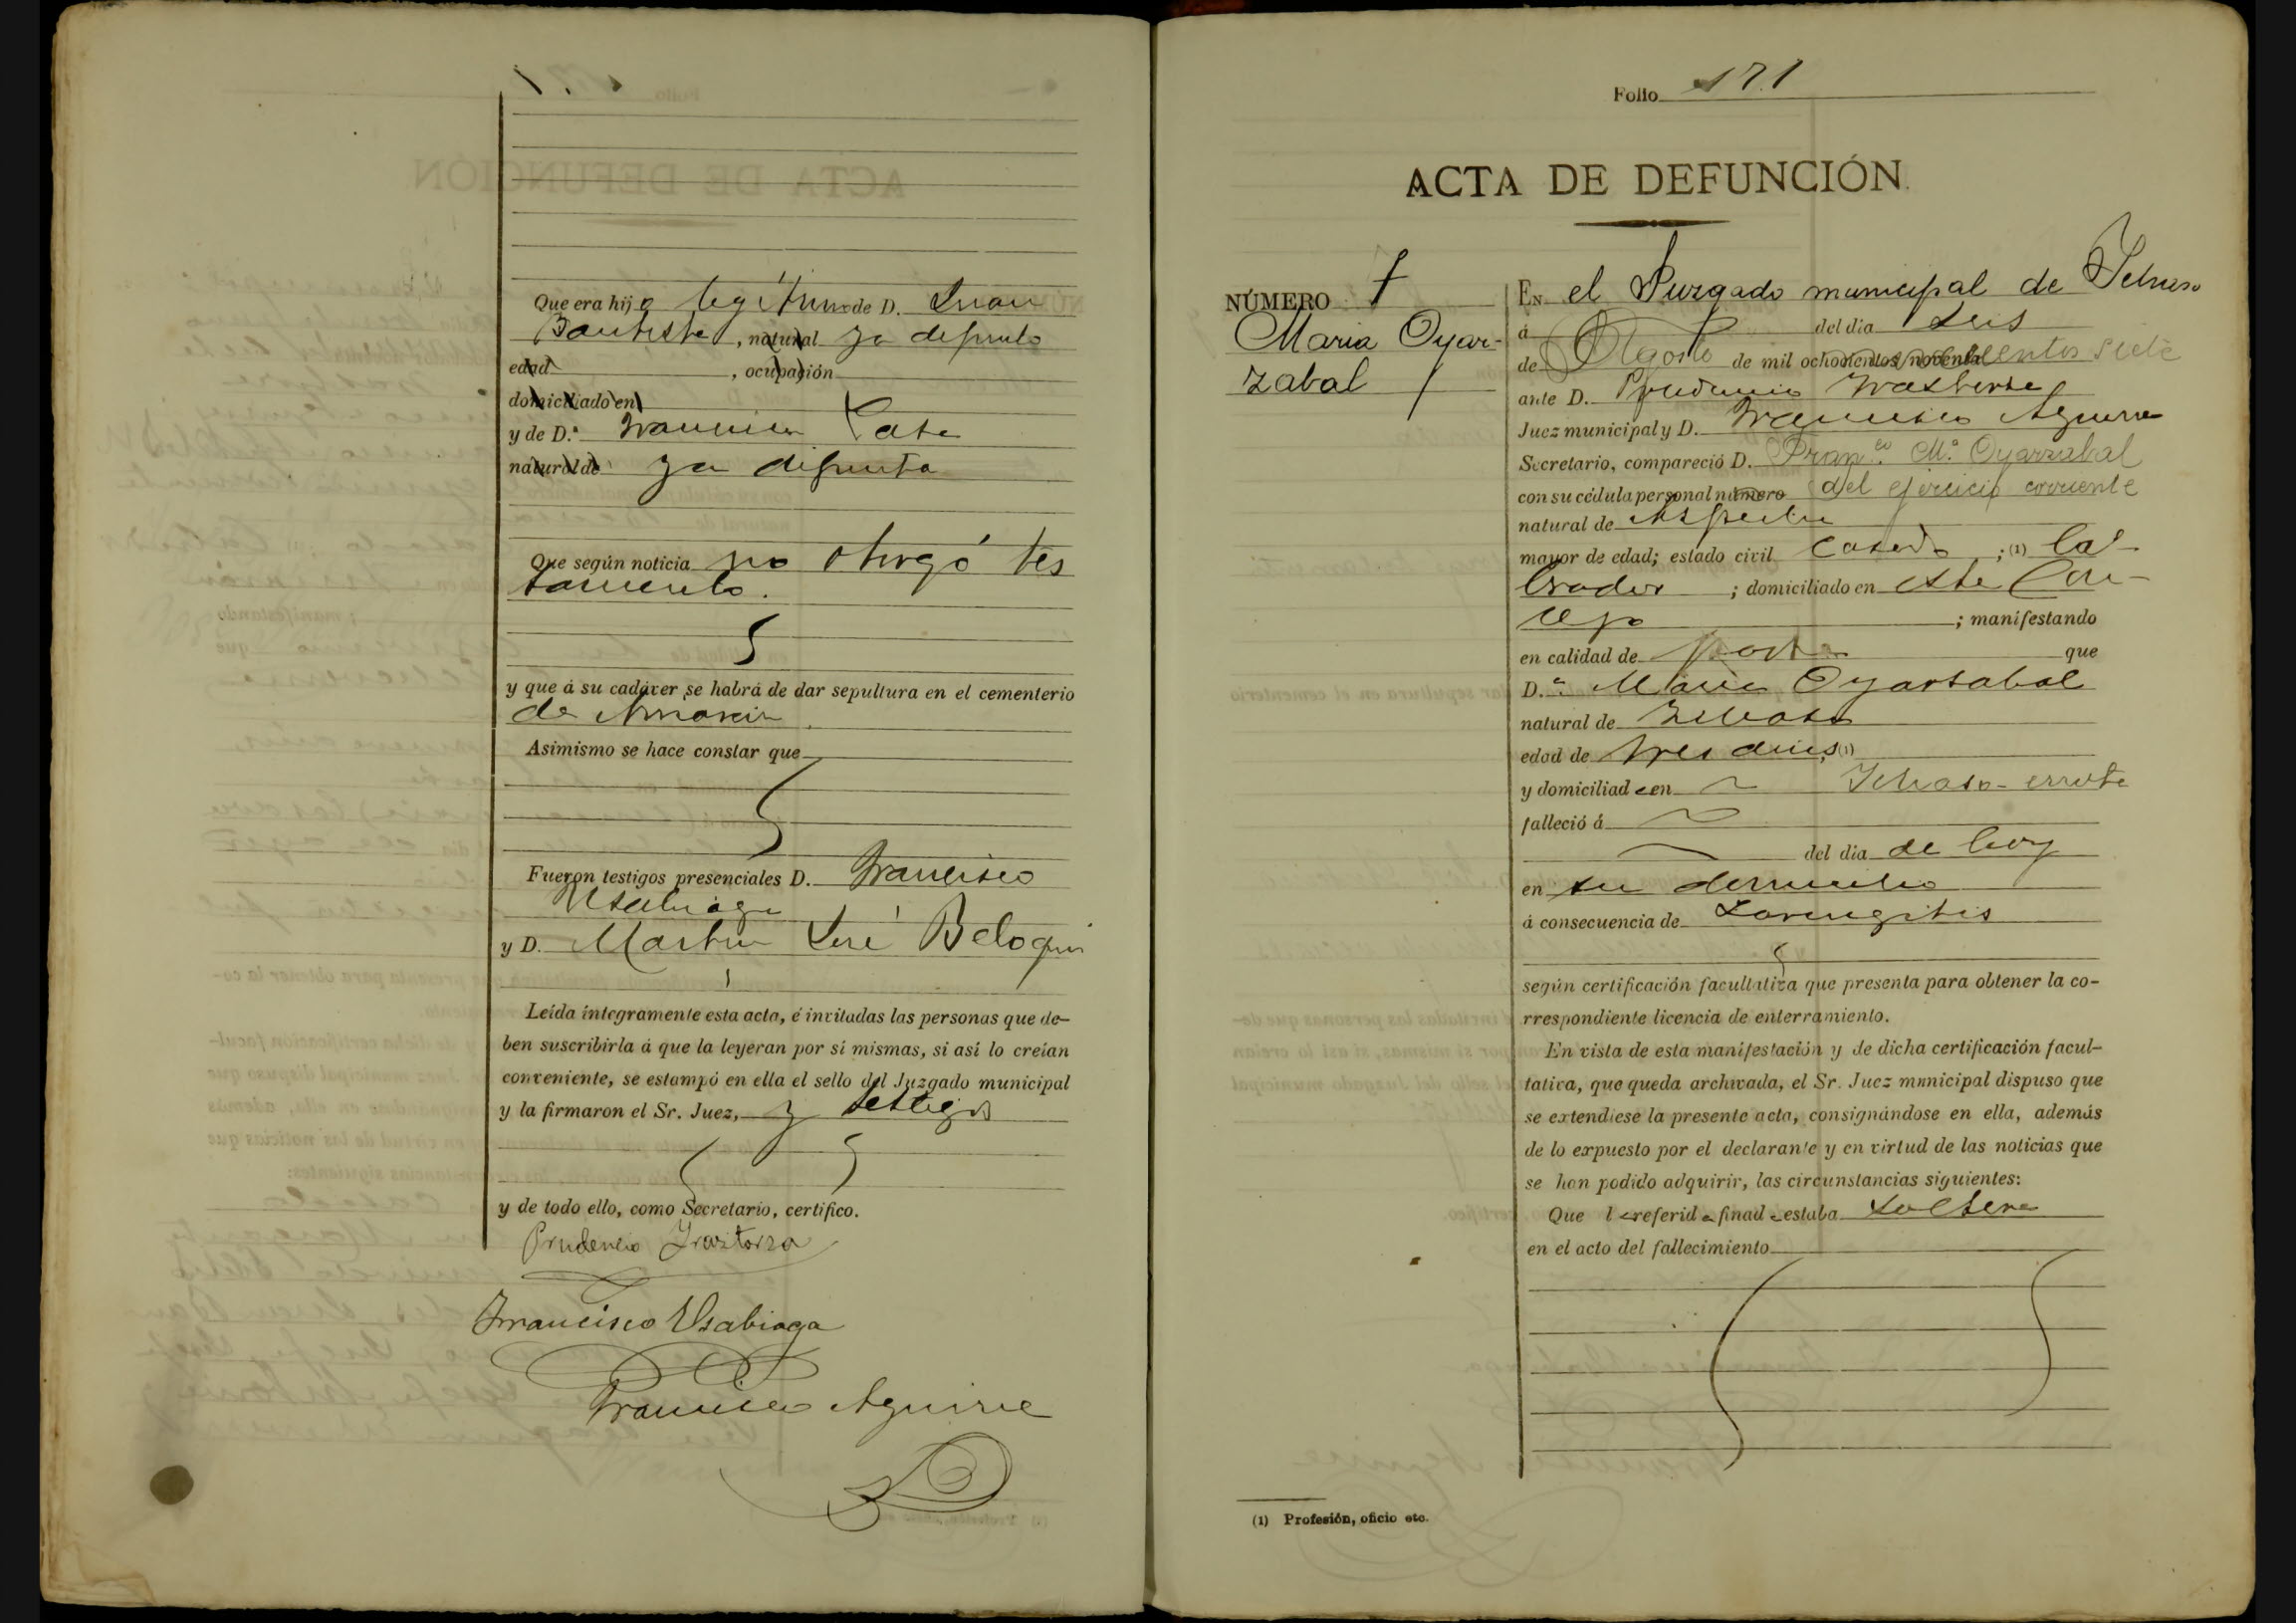 Que era hijo legítimo de D. Juan
Bautista, natural ya difunto
edad , ocupación
domiciliado en
y de D.ª Francisca
natural de ya difunta
Que según noticia no otorgó tes
tamento.
y que á su cadáver se habrá de dar sepultura en el cementerio
de
Asimismo se hace constar que
Fueron testigos presenciales D. Francisco
Usabiaga
y D. Martin José Beloqui
Leída íntegramente esta acta, é invitadas las personas que de-
ben suscribirla á que la leyeran por sí mismas, si así lo creían
conveniente, se estampó en ella el sello del Juzgado municipal
y la firmaron el Sr. Juez, y testigos
y de todo ello, como Secretario, certifico.
Prudencio Irastorza
Francisco Usabiaga
Francisco Aguirre
Folio 171
ACTA DE DEFUNCIÓN.
NÚMERO 7
Maria Oyar-
zabal
En el Juzgado municipal de
á del dia seis
de Agosto de mil ochocientos noventa siete
ante D. Prudencio Irastorza
Juez municipal y D. Francisco Aguirre
Secretario, compareció D. Fran.co M.ª Oyarzabal
con su cédula personal número del ejercicio corriente
natural de
mayor de edad; estado civil Casado ; (1) la-
brador ; domiciliado en este Con-
cejo ; manifestando
en calidad de que
D.ª Maria Oyarsabal
natural de
edad de tres dias, (1)
y domiciliad en
falleció á
del dia de hoy
en su domicilio
á consecuencia de Laringitis
según certificación facultativa que presenta para obtener la co-
rrespondiente licencia de enterramiento.
En vista de esta manifestación y de dicha certificación facul-
tativa, que queda archivada, el Sr. Juez municipal dispuso que
se extendiese la presente acta, consignándose en ella, además
de lo expuesto por el declarante y en virtud de las noticias que
se han podido adquirir, las circunstancias siguientes:
Que la referida finada estaba soltera
en el acto del fallecimiento
(1) Profesión, oficio etc.